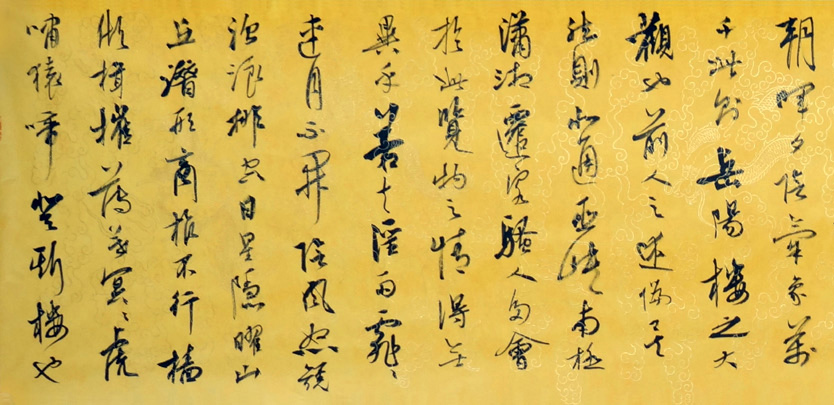 朝暉夕陰氣象萬
千此則岳陽樓之大
觀也前人之述備矣
然則北通巫峽南極
瀟湘遷客騷人多會
於此覽物之情得無
異乎若夫淫雨霏〻
連月不開陰風怒號
濁浪排空日星隱曜山
岳潛形商旅不行檣
傾楫摧薄暮冥〻虎
嘯猿啼登斯樓也